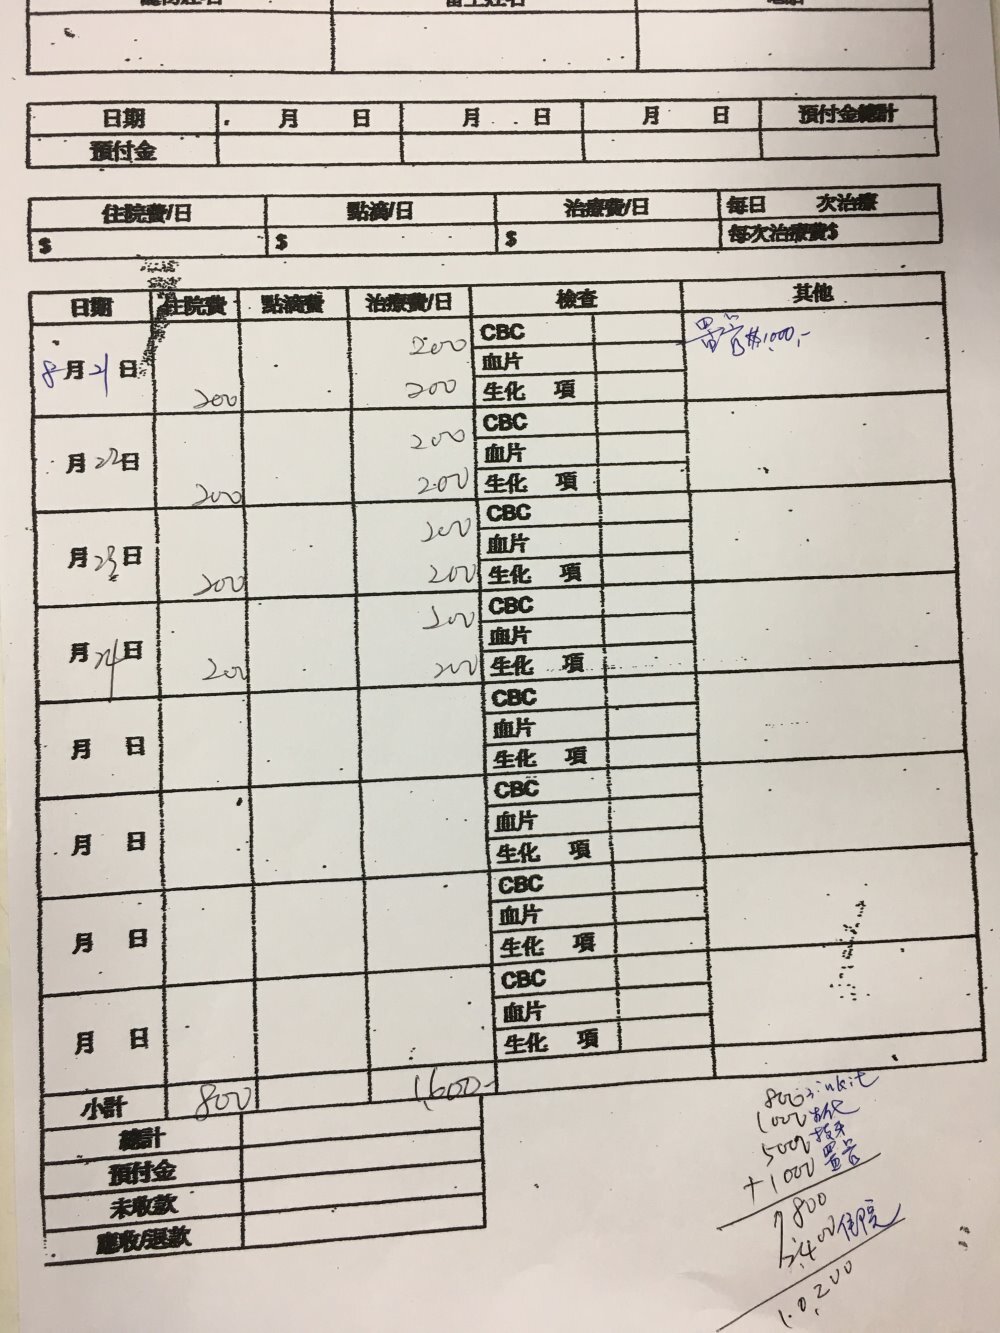 日期 月 日 月 日 月 日 預付金總計
預付金
住院費/日 點滴/日 治療費/日 每日 次治療
$ $ $ 每次治療費$
日期 住院費 點滴費 治療費/日 檢查 其他
200 CBC 置管$1,000,-
8月21日 血片
200 200 生化 項
200 CBC
月22日 血片
200 200 生化 項
200 CBC
月23日 血片
200 200 生化 項
200 CBC
月24日 血片
200 200 生化 項
CBC
月 日 血片
生化 項
CBC
月 日 血片
生化 項
CBC
月 日 血片
生化 項
CBC
月 日 血片
生化 項
小計 800 1,600-
總計
預付金
未收款
應收/退款
800
1000
5000
+1000 置管
7800
2,400 住院
10,200